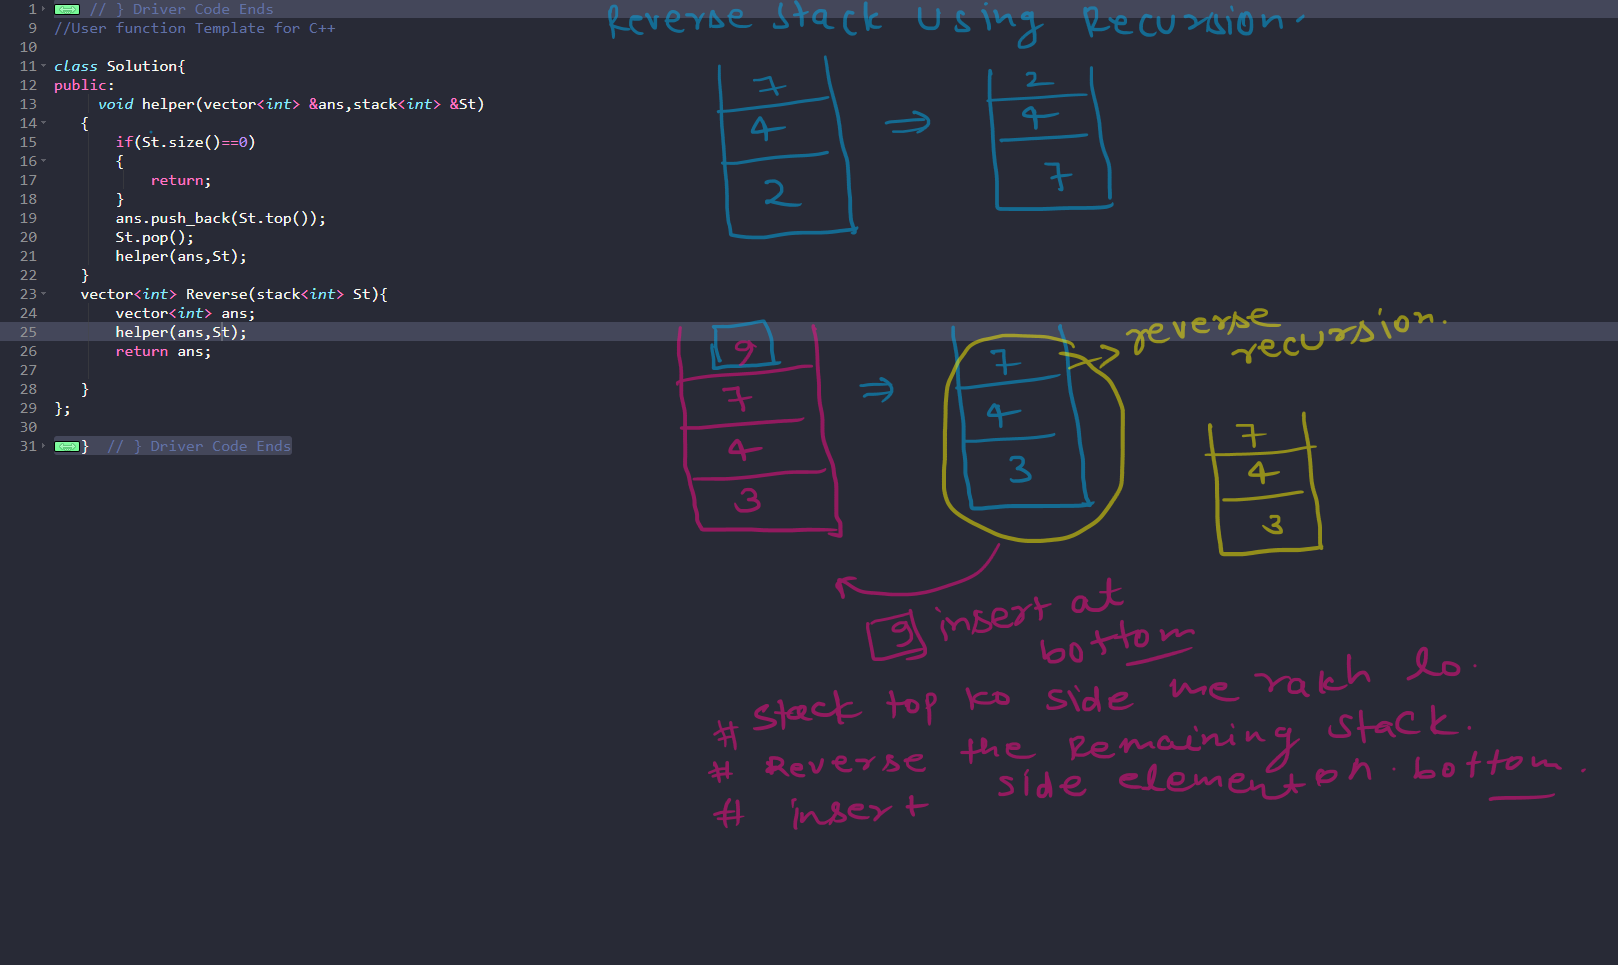 1 // } Driver Code Ends
9 //User function Template for C++
10
11 class Solution{
12 public:
13 void helper(vector<int> &ans,stack<int> &St)
14 {
15 if(St.size()==0)
16 {
17 return;
18 }
19 ans.push_back(St.top());
20 St.pop();
21 helper(ans,St);
22 }
23 vector<int> Reverse(stack<int> St){
24 vector<int> ans;
25 helper(ans,St);
26 return ans;
27
28 }
29 };
30
31 } // } Driver Code Ends
Reverse Stack Using Recursion.
7
4
2
⇒
2
4
7
9
7
4
3
⇒
7
4
3
reverse
recursion.
7
4
3
9 insert at
bottom
# Stack top ko side me rakh lo.
# Reverse the Remaining Stack.
# insert side element on bottom.